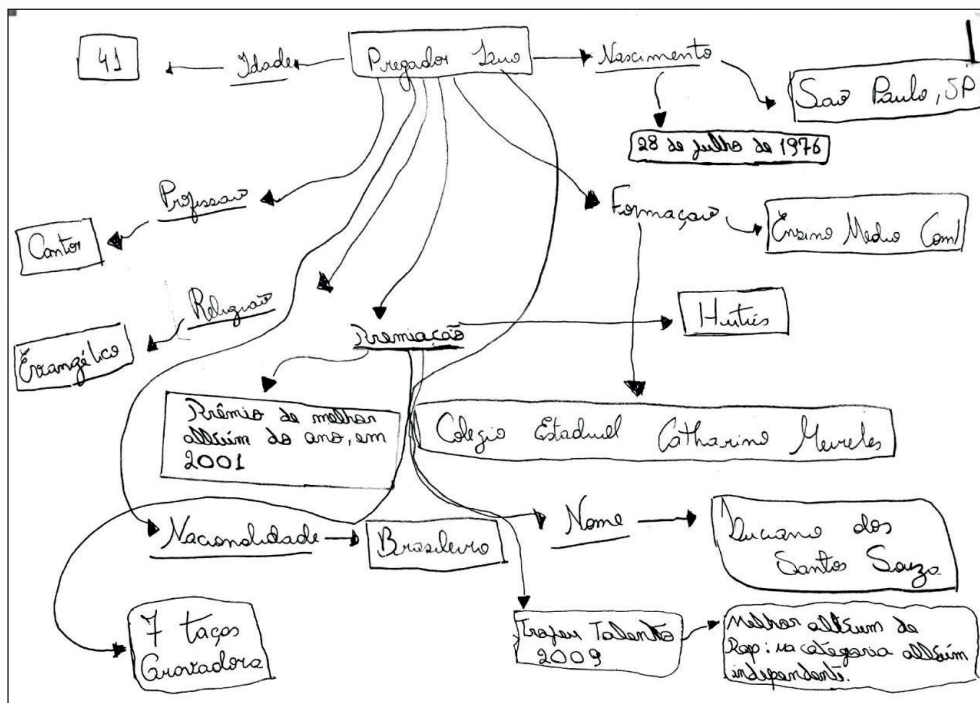 41
Idade
Pregador Luo
Nascimento
Sao Paulo, SP
28 de julho de 1976
Profissão
Cantor
Formação
Ensino Medio Coml
Religião
Evangélico
Premiação
Hutús
Prêmio de melhor
álbum do ano, em
2001
Colegio Estaduel Catharino Meireles
Nacionalidade
Brasileiro
Nome
Luciano dos
Santos Souza
7 taças
Gravadora
Trofeu Talento
2009
Melhor álbum de
Rap: na categoria álbum
independente.